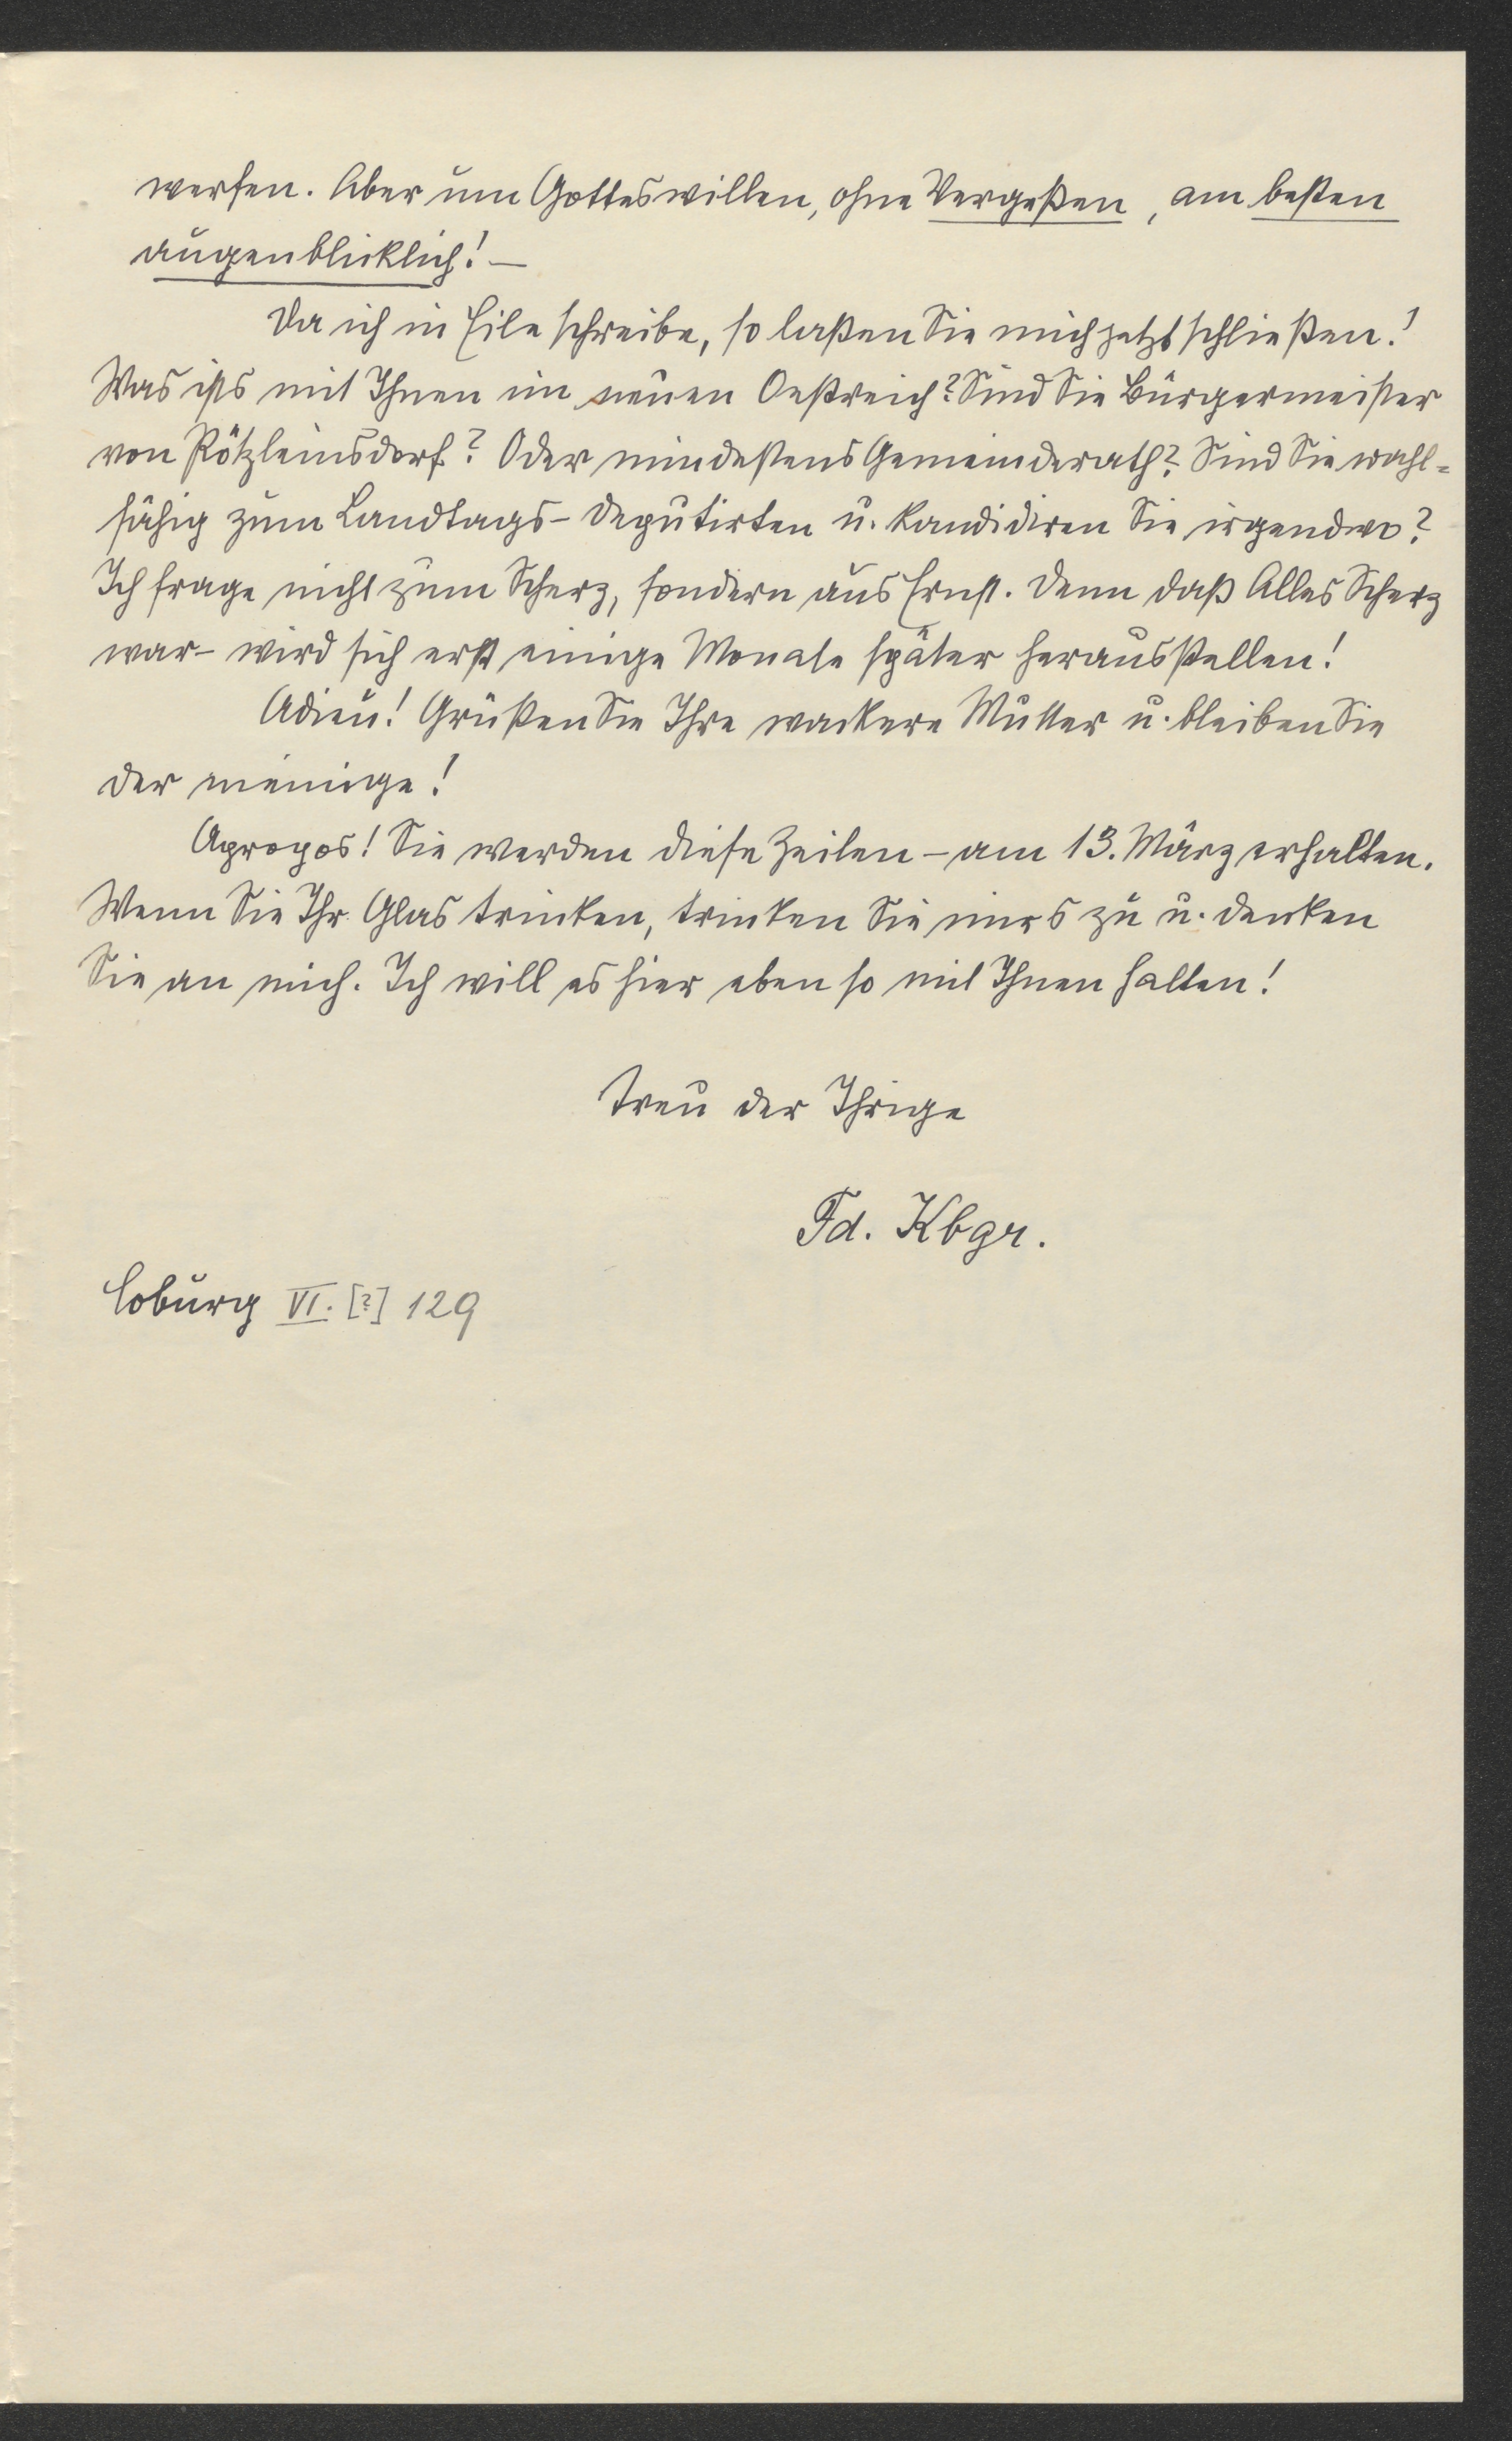 werfen. Aber um Gotteswillen, ohne Vergeßen, am besten
augenblicklich! –
Da ich in Eile schreibe, so laßen Sie mich jetzt schließen!
Was ists mit Ihnen im neuen Oestreich? Sind Sie Bürgermeister
von Pötzleinsdorf? Oder mindestens Gemeinderath? Sind Sie wahl=
fähig zum Landtags-Deputirten u. kandidiren Sie irgendwo?
Ich frage nicht zum Scherz, sondern aus Ernst. Denn daß Alles Scherz
war – wird sich erst einige Monate später herausstellen!
Adieu! Grüßen Sie Ihre wackere Mutter u. bleiben Sie
der meinige!
Apropos! Sie werden diese Zeilen – am 13. März erhalten.
Wenn Sie Ihr Glas trinken, trinken Sie mirs zu u. denken
Sie an mich. Ich will es hier eben so mit Ihnen halten!
Treu der Ihrige
Fd. Kbgr.
Coburg VI. [?] 129